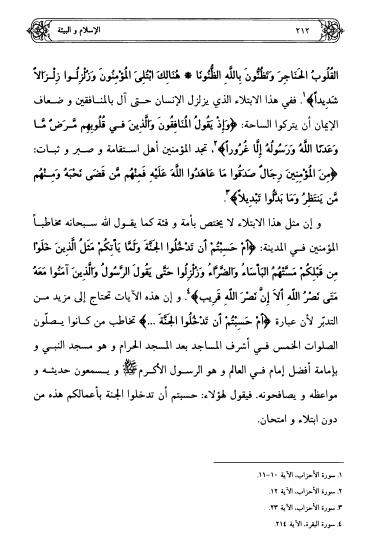 ٢١٢ الإسلام و البيئة
القُلُوبُ الحَنَاجِرَ وَتَظُنُّونَ بِاللَّهِ الظُّنُونَا * هُنَالِكَ ابْتُلِيَ الْمُؤْمِنُونَ وَزُلْزِلُوا زِلْزَالاً
شَدِيداً﴾١. ففي هذا الابتلاء الذي يزلزل الإنسان حتى آل بالمنافقين و ضعاف
الإيمان أن يتركوا الساحة: ﴿وَإِذْ يَقُولُ الْمُنَافِقُونَ وَالَّذِينَ فِي قُلُوبِهِم مَّرَضٌ مَّا
وَعَدَنَا اللَّهُ وَرَسُولُهُ إِلَّا غُرُوراً﴾٢. تجد المؤمنين أهل استقامة و صبر و ثبات:
﴿مِنَ الْمُؤْمِنِينَ رِجَالٌ صَدَقُوا مَا عَاهَدُوا اللَّهَ عَلَيْهِ فَمِنْهُم مَّن قَضَى نَحْبَهُ وَمِنْهُم
مَّن يَنتَظِرُ وَمَا بَدَّلُوا تَبْدِيلاً﴾٣
و إن مثل هذا الابتلاء لا يختص بأمة و فئة كما يقول الله سبحانه مخاطباً
المؤمنين في المدينة: ﴿أَمْ حَسِبْتُمْ أَن تَدْخُلُوا الجَنَّةَ وَلَمَّا يَأْتِكُم مَّثَلُ الَّذِينَ خَلَوْا
مِن قَبْلِكُم مَسَّتْهُمُ البَأْسَاءُ وَالضَّرَّاءُ وَزُلْزِلُوا حَتَّى يَقُولَ الرَّسُولُ وَالَّذِينَ آمَنُوا مَعَهُ
مَتَى نَصْرُ اللَّهِ أَلاَ إِنَّ نَصْرَ اللَّهِ قَرِيب﴾٤. و إن هذه الآيات تحتاج إلى مزيد من
التدبّر لأن عبارة ﴿أَمْ حَسِبْتُمْ أَن تَدْخُلُوا الجَنَّةَ ...﴾ تخاطب من كانوا يصلّون
الصلوات الخمس في أشرف المساجد بعد المسجد الحرام و هو مسجد النبي و
بإمامة أفضل إمام في العالم و هو الرسول الأكرم ﷺ و يسمعون حديثه و
مواعظه و يصافحونه. فيقول لهؤلاء: حسبتم أن تدخلوا الجنة بأعمالكم هذه من
دون ابتلاء و امتحان.
١. سورة الأحزاب، الآية ١٠-١١.
٢. سورة الأحزاب، الآية ١٢.
٣. سورة الأحزاب، الآية ٢٣.
٤. سورة البقرة، الآية ٢١٤.